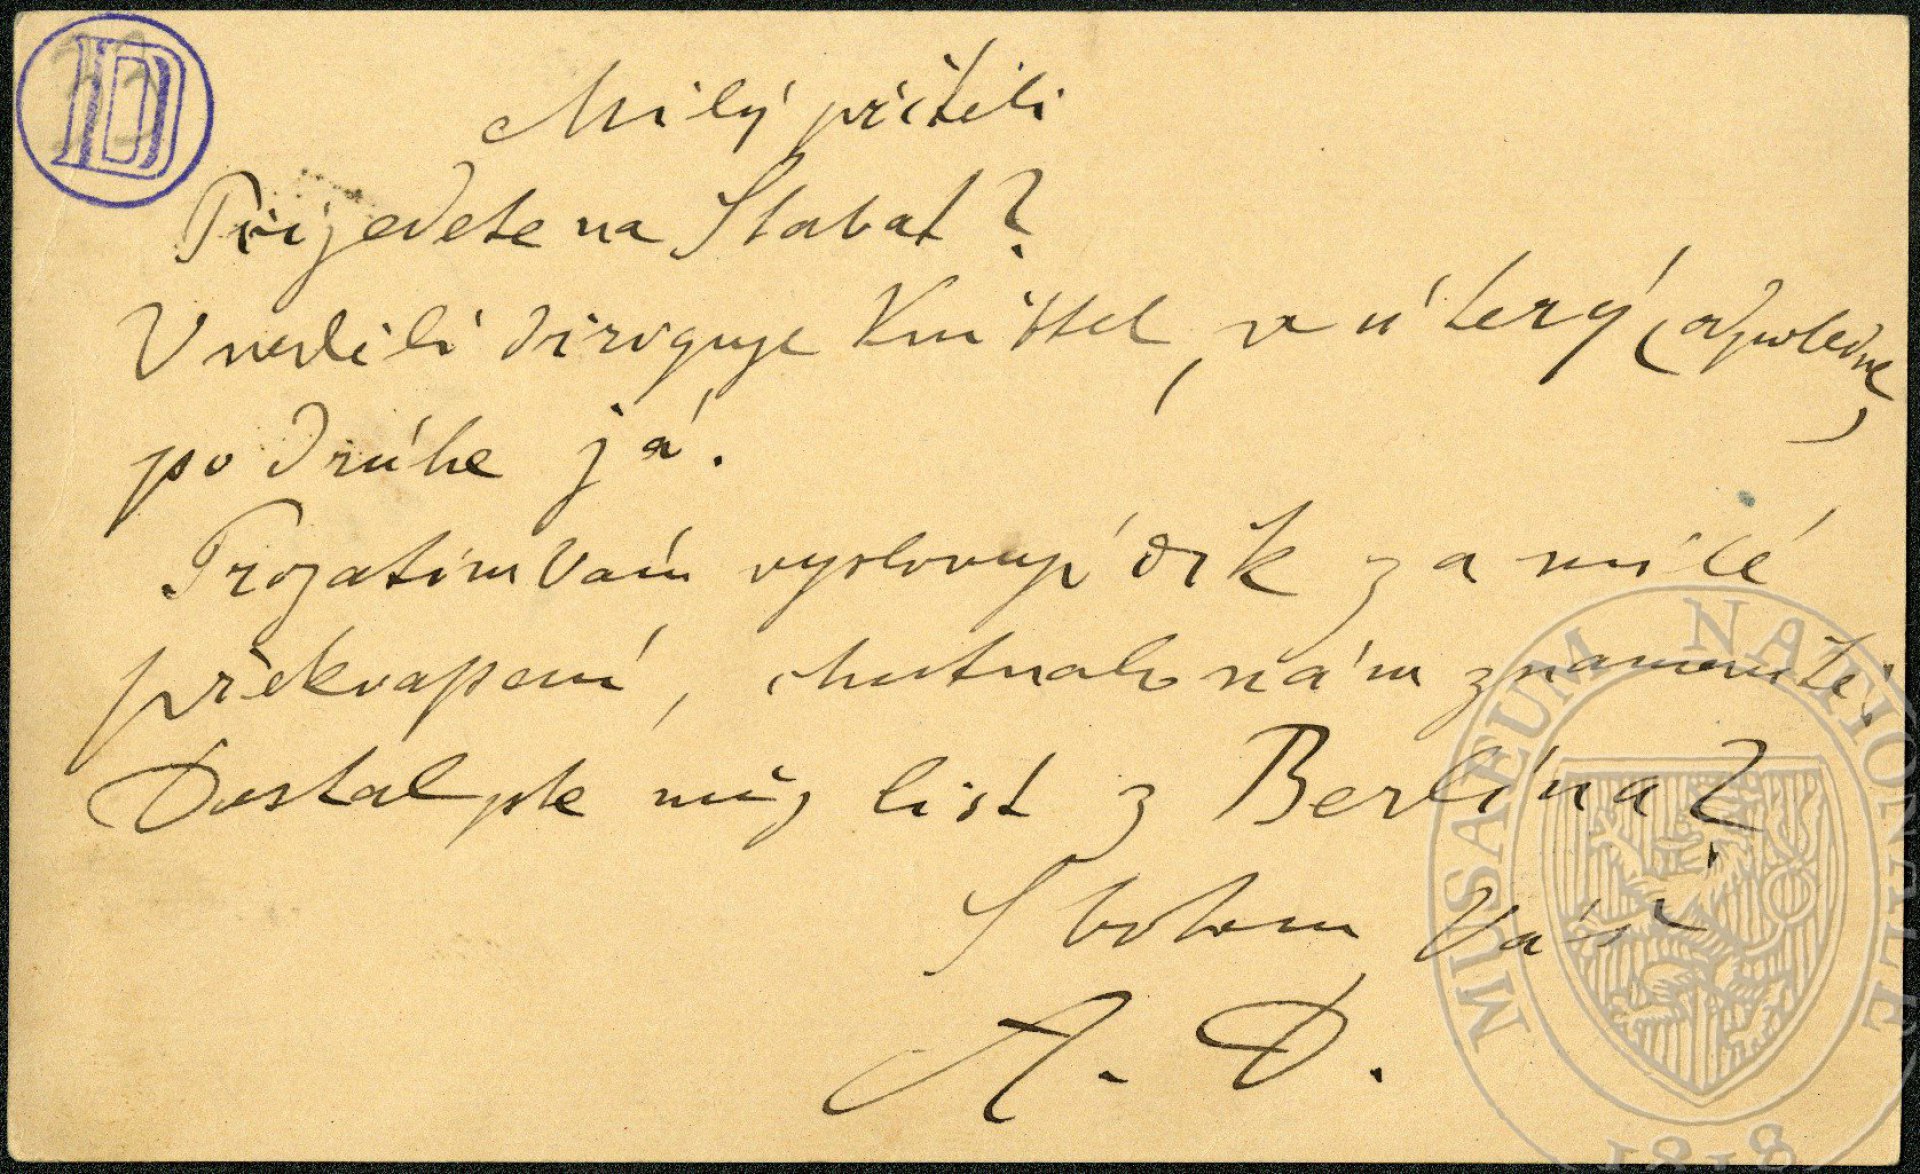 D
Milý příteli
Přijedete na Stabat?
V neděli diriguje Knittel, v úterý (odpoledne)
po drúhe já.
Prozatím Vám vyslovuji dík za milé
překvapení, chutnalo nám znamenitě.
Dostal jste můj list z Berlína?
S bohem Váš
A. D.
MUSAEUM NATIONALE
1818